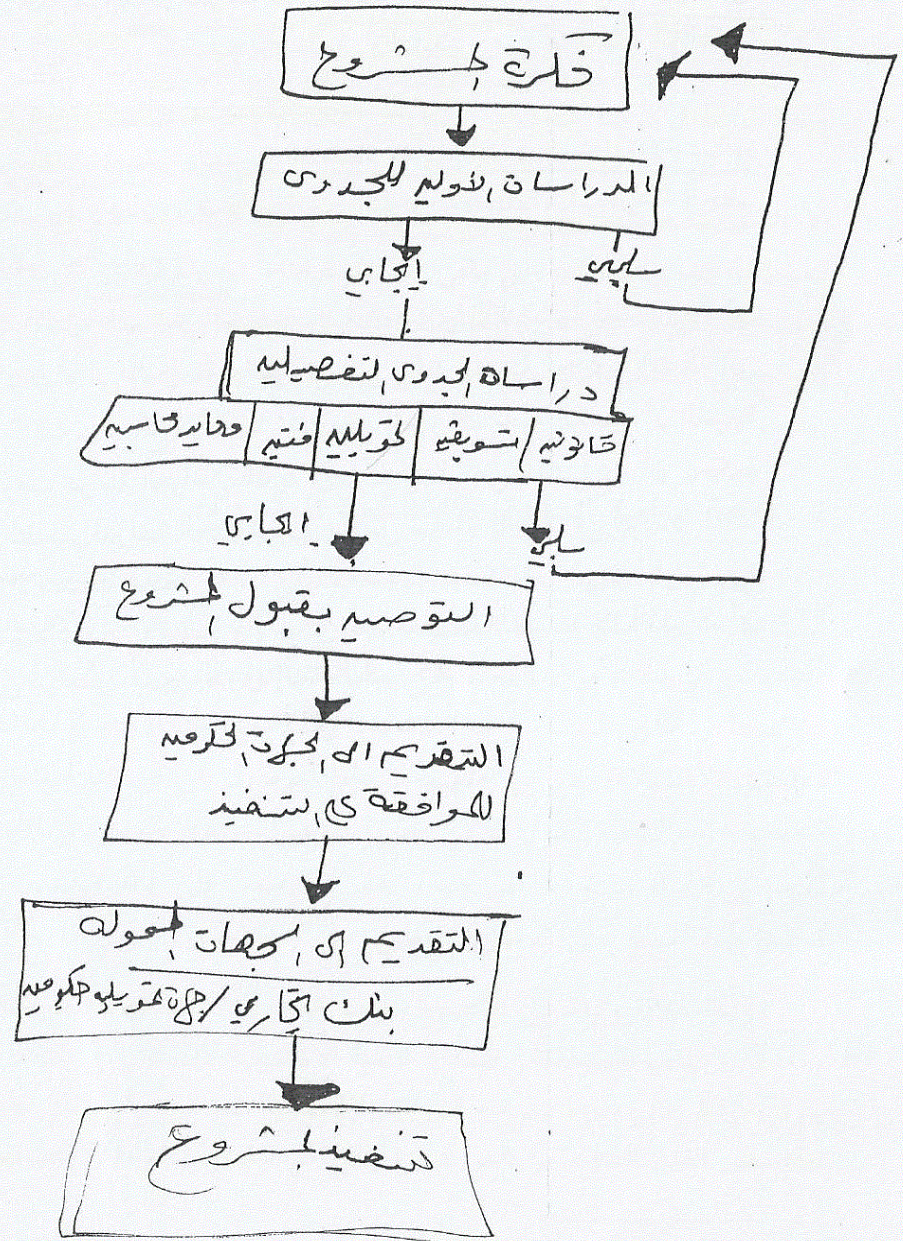 فكرة المشروع
الدراسات الأوليه للجدوى
إيجابي
سلبي
دراسات الجدوى التفصيليه
قانونيه / تسويقيه
تمويليه
فنيه
محاسبيه
ايجابي
سلبي
التوصيه بقبول المشروع
التقديم الى الجهات الحكوميه
للموافقة على التنفيذ
التقديم إلى الجهات الممولة
بنك تجاري / جهة تمويليه حكوميه
تنفيذ المشروع